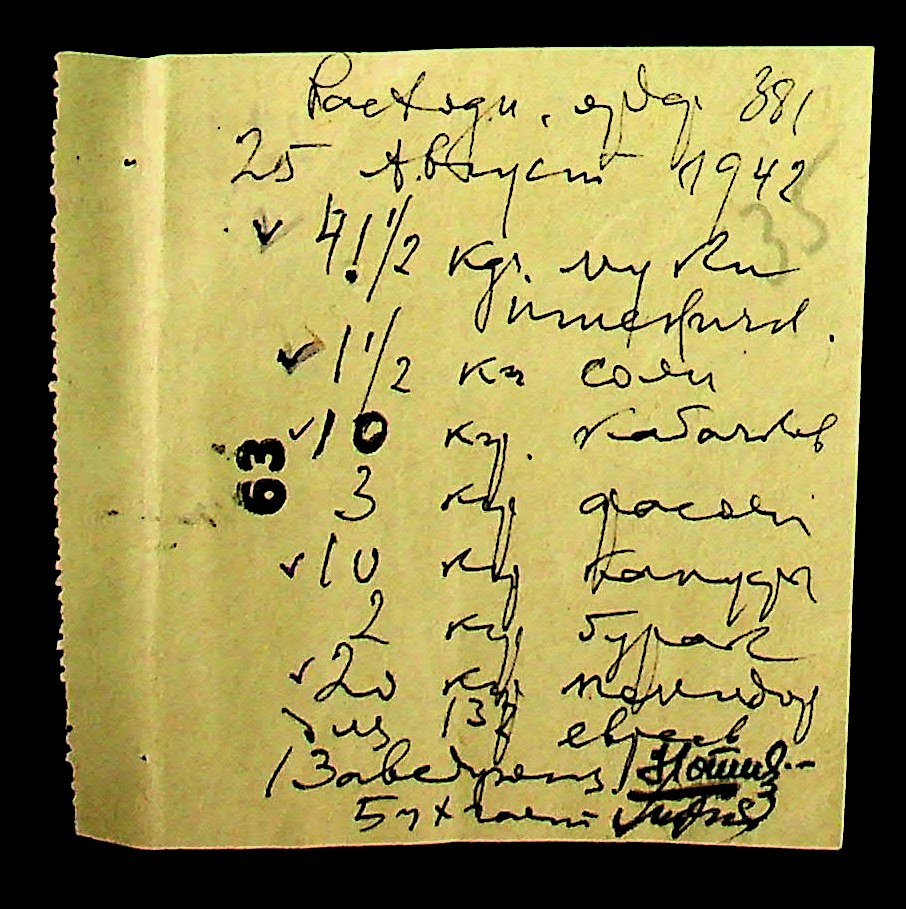 Расходи. орд. 381
25 Август 1942
35
4 1/2 кгр. муки
пшеничной.
1 1/2 кг соли
10 кгр. кабачков
3 кгр фасоли
10 кгр капусты
2 кгр бурак
20 кгр помидор
из 132 евреев
Заведующ
Бухгалт
63